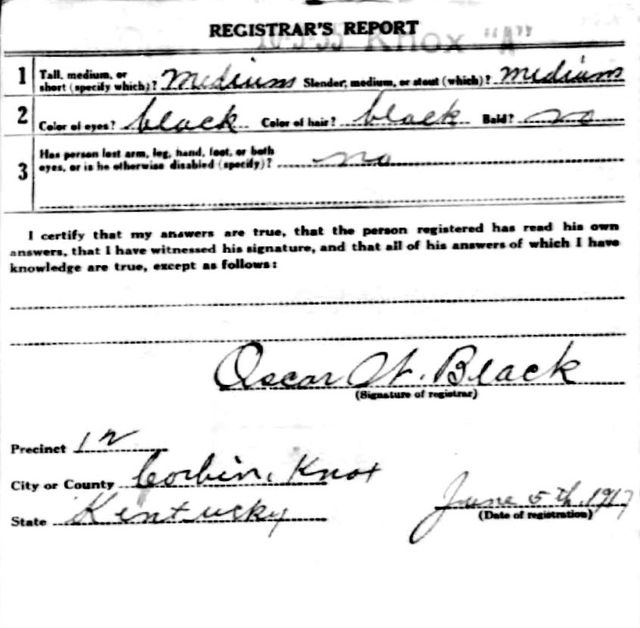 REGISTRAR'S REPORT
16-3-33 Knox "A"
1 Tall, medium, or short (specify which)? Medium Slender, medium, or stout (which)? medium
2 Color of eyes? black Color of hair? black Bald? no
3 Has person lost arm, leg, hand, foot, or both eyes, or is he otherwise disabled (specify)? no
I certify that my answers are true, that the person registered has read his own
answers, that I have witnessed his signature, and that all of his answers of which I have
knowledge are true, except as follows:
Oscar W. Black
(Signature of registrar)
Precinct 12
City or County Corbin, Knox
State Kentucky
June 5th, 1917
(Date of registration)